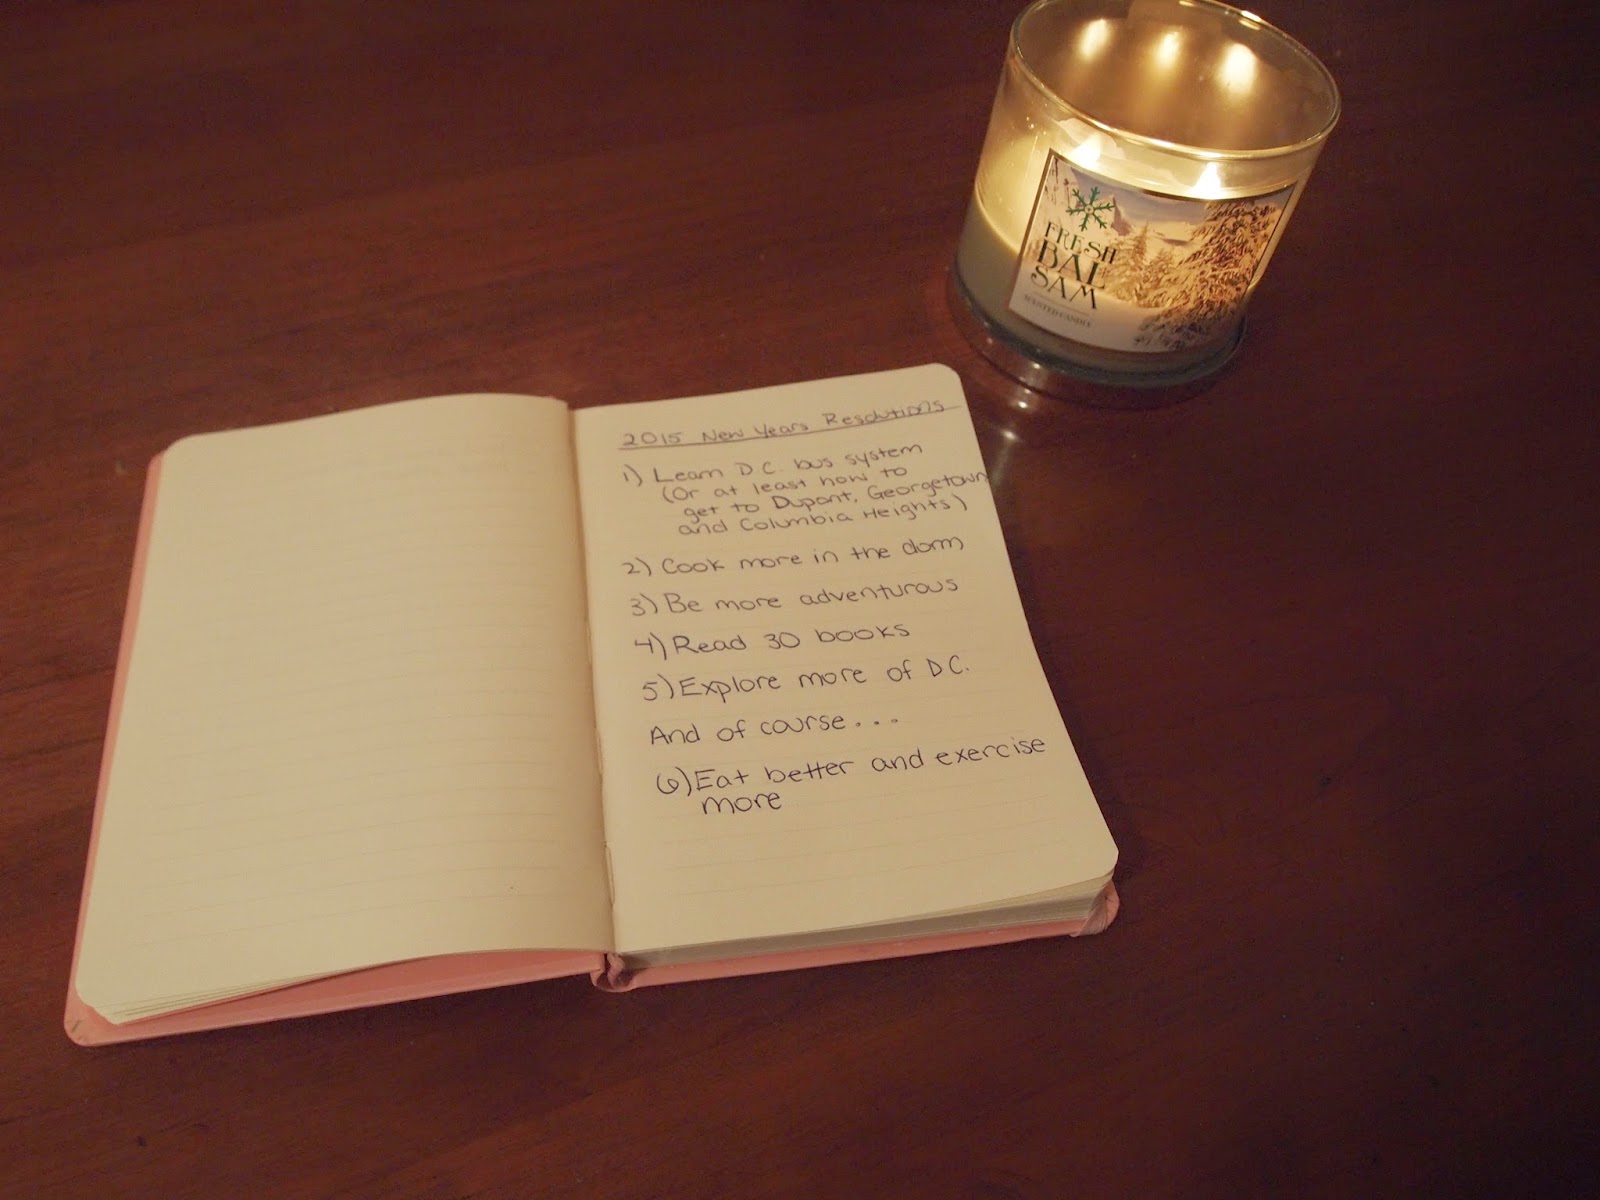 FRESH
BAL
SAM
SCENTED CANDLE
2015 New Years Resolutions
1) Learn D.C. bus system
(Or at least how to
get to Dupont, Georgetown
and Columbia Heights)
2) Cook more in the dorm
3) Be more adventurous
4) Read 30 books
5) Explore more of D.C.
And of course...
6) Eat better and exercise
more